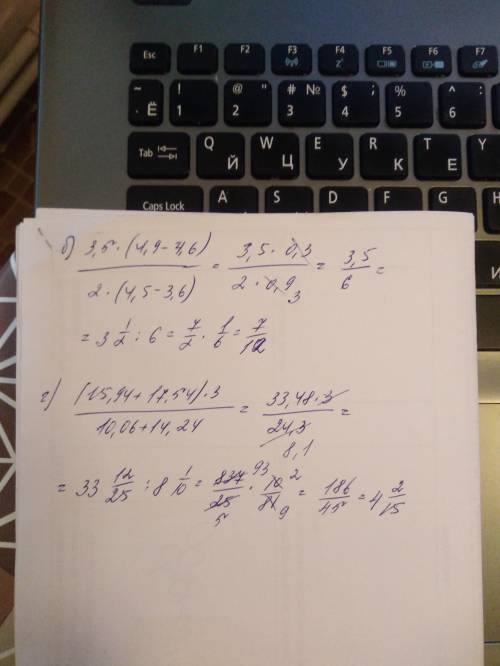 Esc F1 F2 F3 F4 F5 F6 F7
~ ! @ " # № $ ; % ^ :
Ё 1 2 3 4 5 6
Tab Q Й W Ц E У R К T Е Y
Caps Lock A S D F G
И
б) 3,5·(4,9-4,6) / 2·(4,5-3,6) = 3,5·0,3 / 2·0,9 3 = 3,5/6 =
= 3 1/2 : 6 = 7/2 · 1/6 = 7/12
г) (15,94+17,54)·3 / 10,06+14,24 = 33,48·3 / 24,3 8,1 =
= 33 12/25 : 8 1/10 = 837 93 / 25 5 · 10 2 / 81 9 = 186/45 = 4 2/15